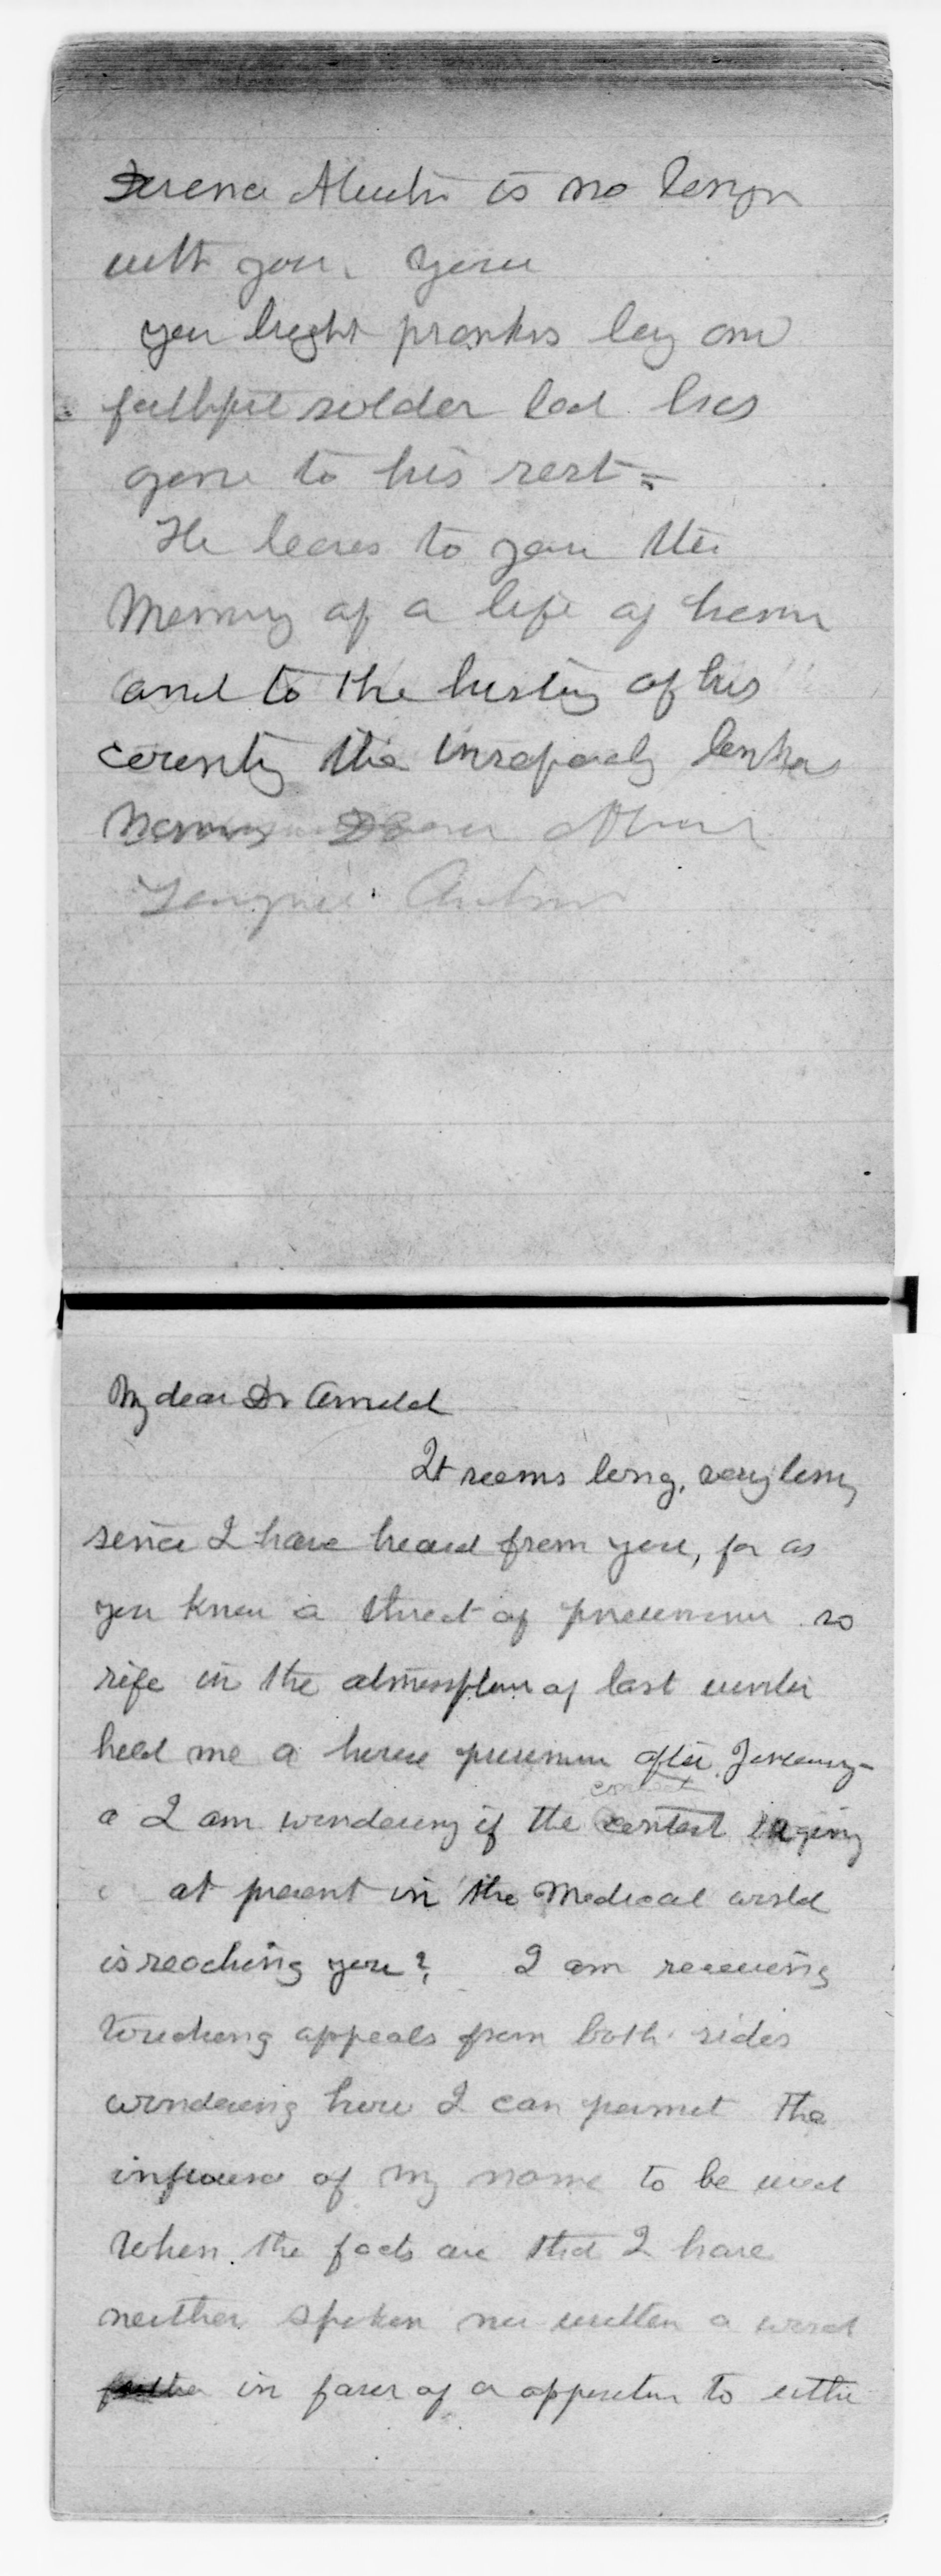 is no longer
with you.
your bright pranks boy our
faithful soldier lad has
gone to his rest -
He leaves to you the
Memory of a life of honor
and to the history of his
country the inseparably
names
My dear Dr Arnold
It seems long, very long
since I have heard from you, for as
you know a threat of pneumonia so
rife in the atmosphere of last winter
held me a house prisoner after January -
a I am wondering if the contest raging
at present in the Medical world
is reaching you? I am receiving
touching appeals from both sides
wondering how I can permit the
influence of my name to be used
When the facts are that I have
neither spoken nor written a word
in favor of or opposition to either